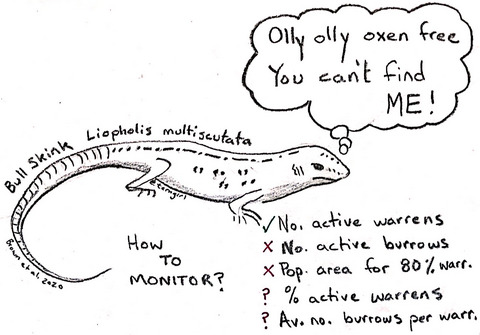 Olly olly oxen free
You can't find
ME!
Bull Skink Liopholis multiscutata
@zerngirl
Brown et al, 2020
HOW
TO
MONITOR?
✓ No. active warrens
x No. active burrows
x Pop. area for 80% warr.
? % active warrens
? Av. no. burrows per warr.